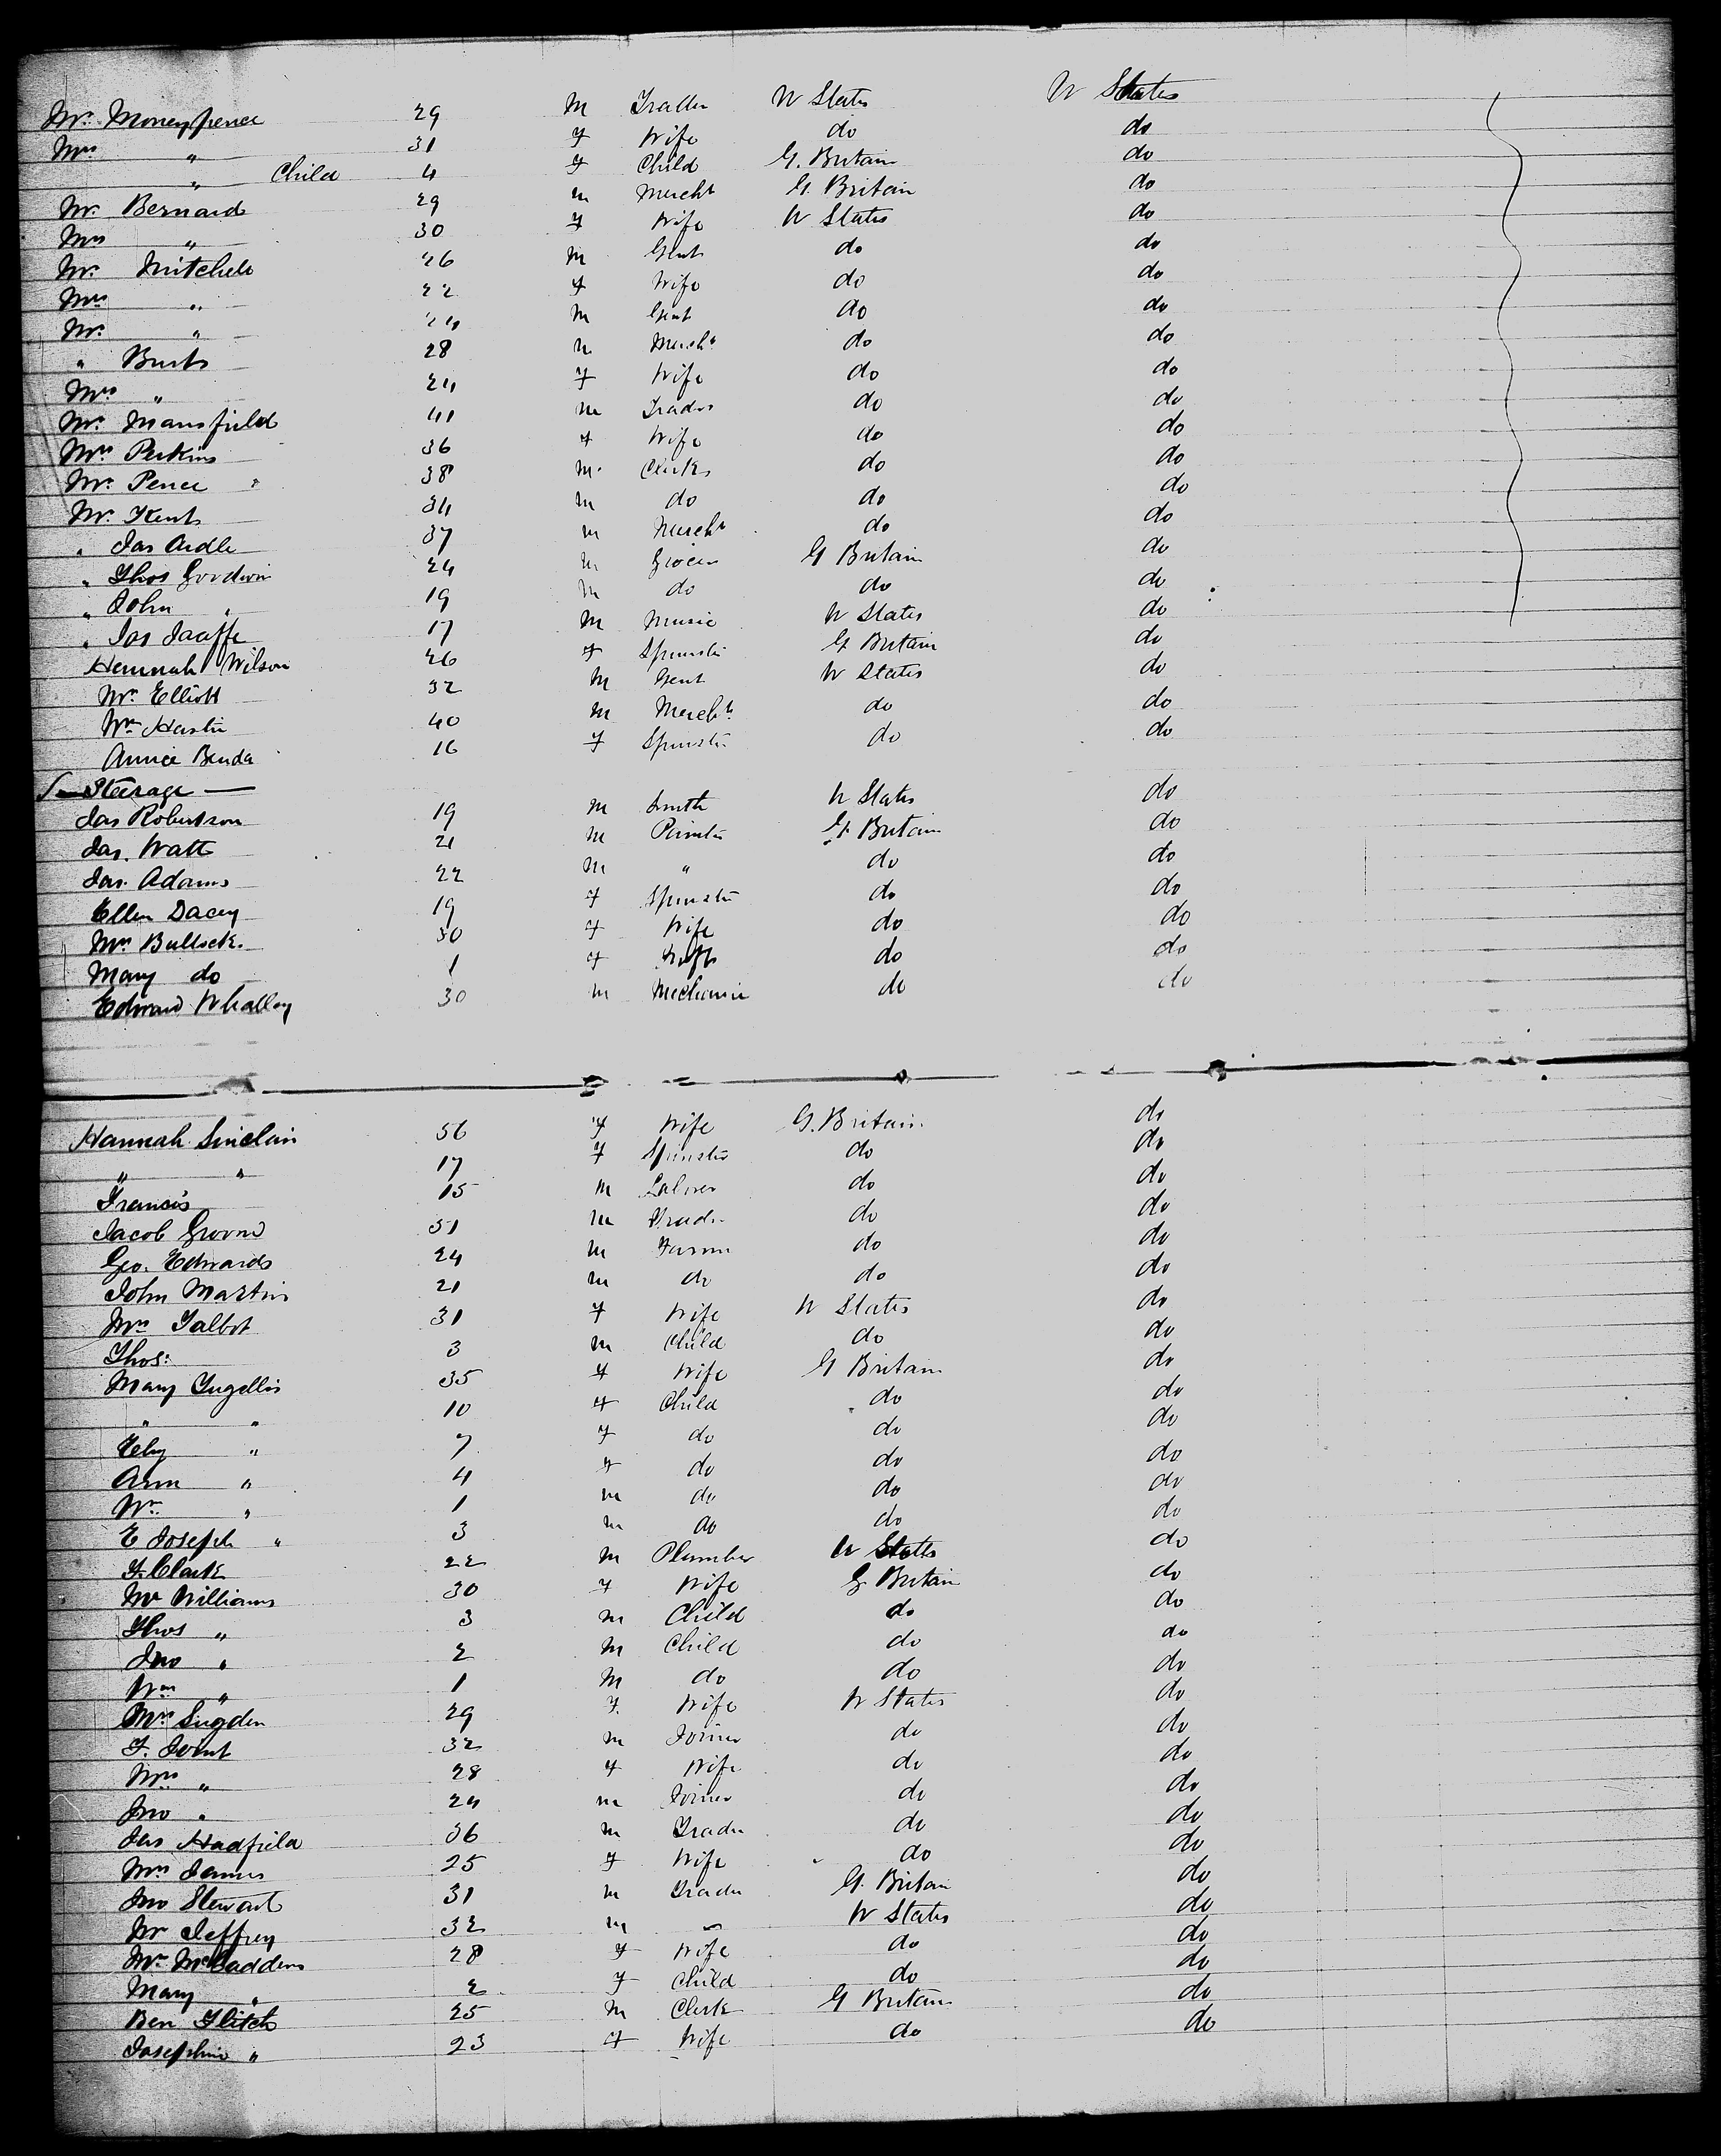 Mr. Moneypence 29 M Trader U States U States
Mrs " 31 F Wife do do
" Child 4 F Child G. Britain do
Mr. Bernard 29 m Mercht G. Britain do
Mrs " 30 F Wife U States do
Mr. Mitchell 26 M Gent do do
Mrs " 22 F Wife do do
Mr. " 24 M Gent do do
" 28 m Mercht do do
Mrs " 24 F Wife do do
Mr. Mansfield 41 m Trader do do
Mrs Perkins 36 F Wife do do
Mr. Pence 38 m. Clerk do do
Mr. Kent 34 m do do do
" Jas Ardle 37 m Mercht do do
" Thos Goodwin 24 m Grocer G Britain do
" John " 19 m do do do
" Jas Jaaffe 17 M Music U States do
Hannah Wilson 26 F Spinster G Britain do
Mr. Elliott 32 M Gent U States do
40 M Mercht. do do
Annie Benda 16 F Spinster do do
Steerage
Jas Robertson 19 M Smith U States do
Jas. Watt 21 M Painter G. Britain do
Jas. Adams 22 M " do do
Ellen Dacey 19 F Spinster do do
Mrs Bullock. 30 F Wife do do
Mary do 1 F do do
Edward Whalley 30 M Mechanic do do
Hannah Sinclair 56 F Wife G. Britain do
" " 17 F Spinster do do
Francis 15 M Laborer do do
Jacob 51 m Trader do do
Geo. Edwards 24 M Farmer do do
John Martin 21 m do do do
Mrs Talbot 31 F Wife U States do
Thos: 3 m Child do do
Mary 35 F Wife G Britain do
" " 10 F Child do do
" 7 F do do do
Ann " 4 F do do do
Wm " 1 m do do do
E Joseph " 3 m do do do
F. Clark 22 M Plumber U States do
Mrs Williams 30 F Wife G Britain do
Thos " 3 m Child do do
Jno " 2 M Child do do
Wm " 1 M do do do
Mrs Sugden 29 F. Wife U States do
32 m Joiner do do
Mrs " 28 F Wife do do
Jno " 24 m Joiner do do
Jas Hadfield 36 m Trader do do
Mrs James 25 F Wife do do
Jno Stewart 31 m Trader G. Britain do
Mr Jeffrey 32 m " U States do
Mrs McFaddens 28 F Wife do do
Mary " 2 F Child do do
Ben Flitch 25 M Clerk G Britain do
Josephine " 23 F Wife do do